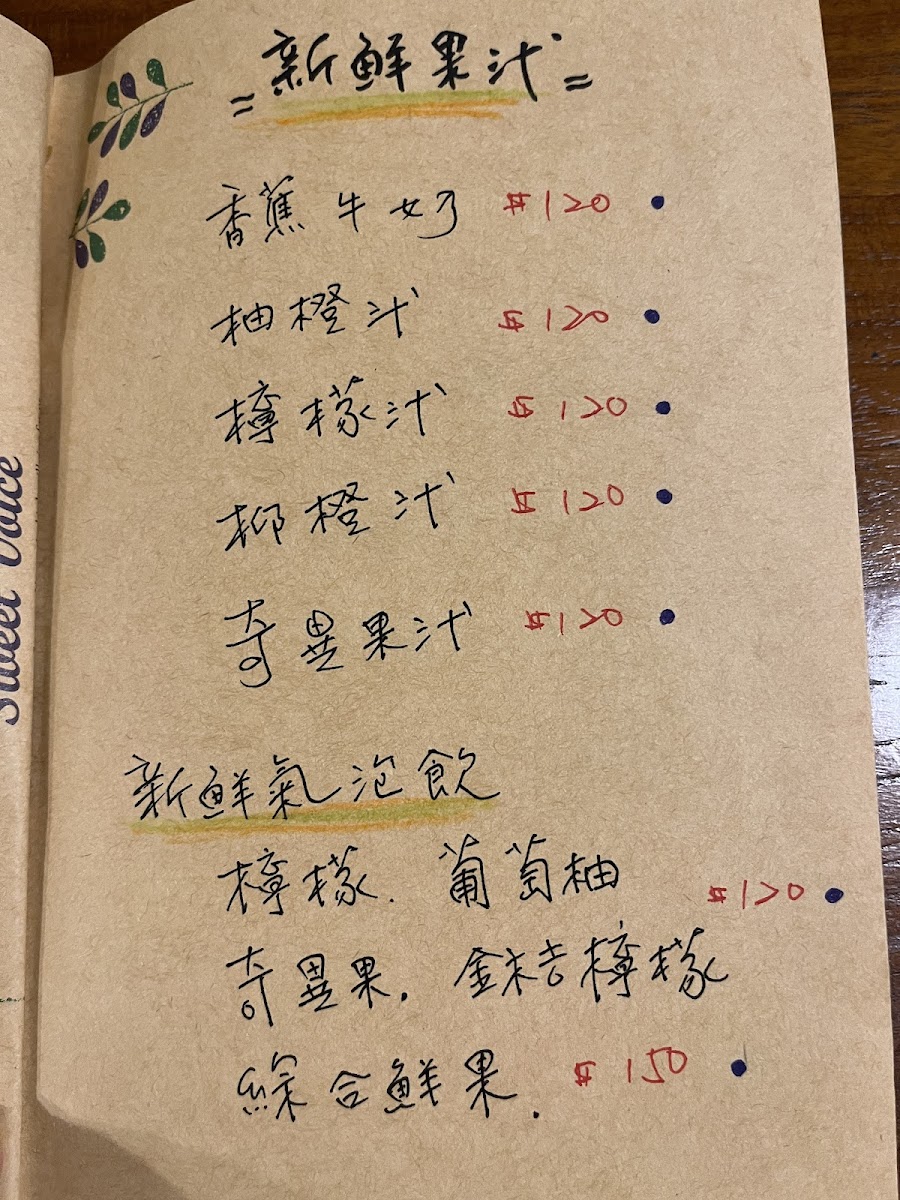 =新鮮果汁=
香蕉牛奶 $120
柚橙汁 $120
檸檬汁 $120
柳橙汁 $120
奇異果汁 $120
新鮮氣泡飲
檸檬. 葡萄柚 $120
奇異果. 金桔檸檬
綜合鮮果. $150
Sweet Voice